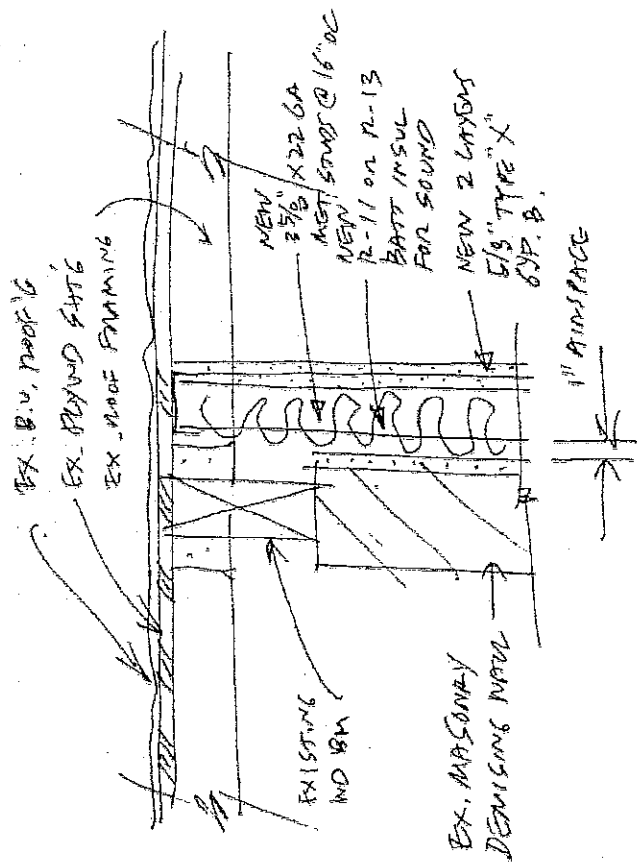 EX. B.U. ROOF'G
EX. PLYWD SHT'G
EX. ROOF FRAMING
NEW
3 5/8" X 22 GA
MET. STUDS @ 16" OC
NEW
R-11 OR R-13
BATT INSUL
FOR SOUND
NEW 2 LAYERS
5/8" TYPE "X"
GYP. B.
1" AIRSPACE
EXISTING
WD BM
EX. MASONRY
DEMISING WALL